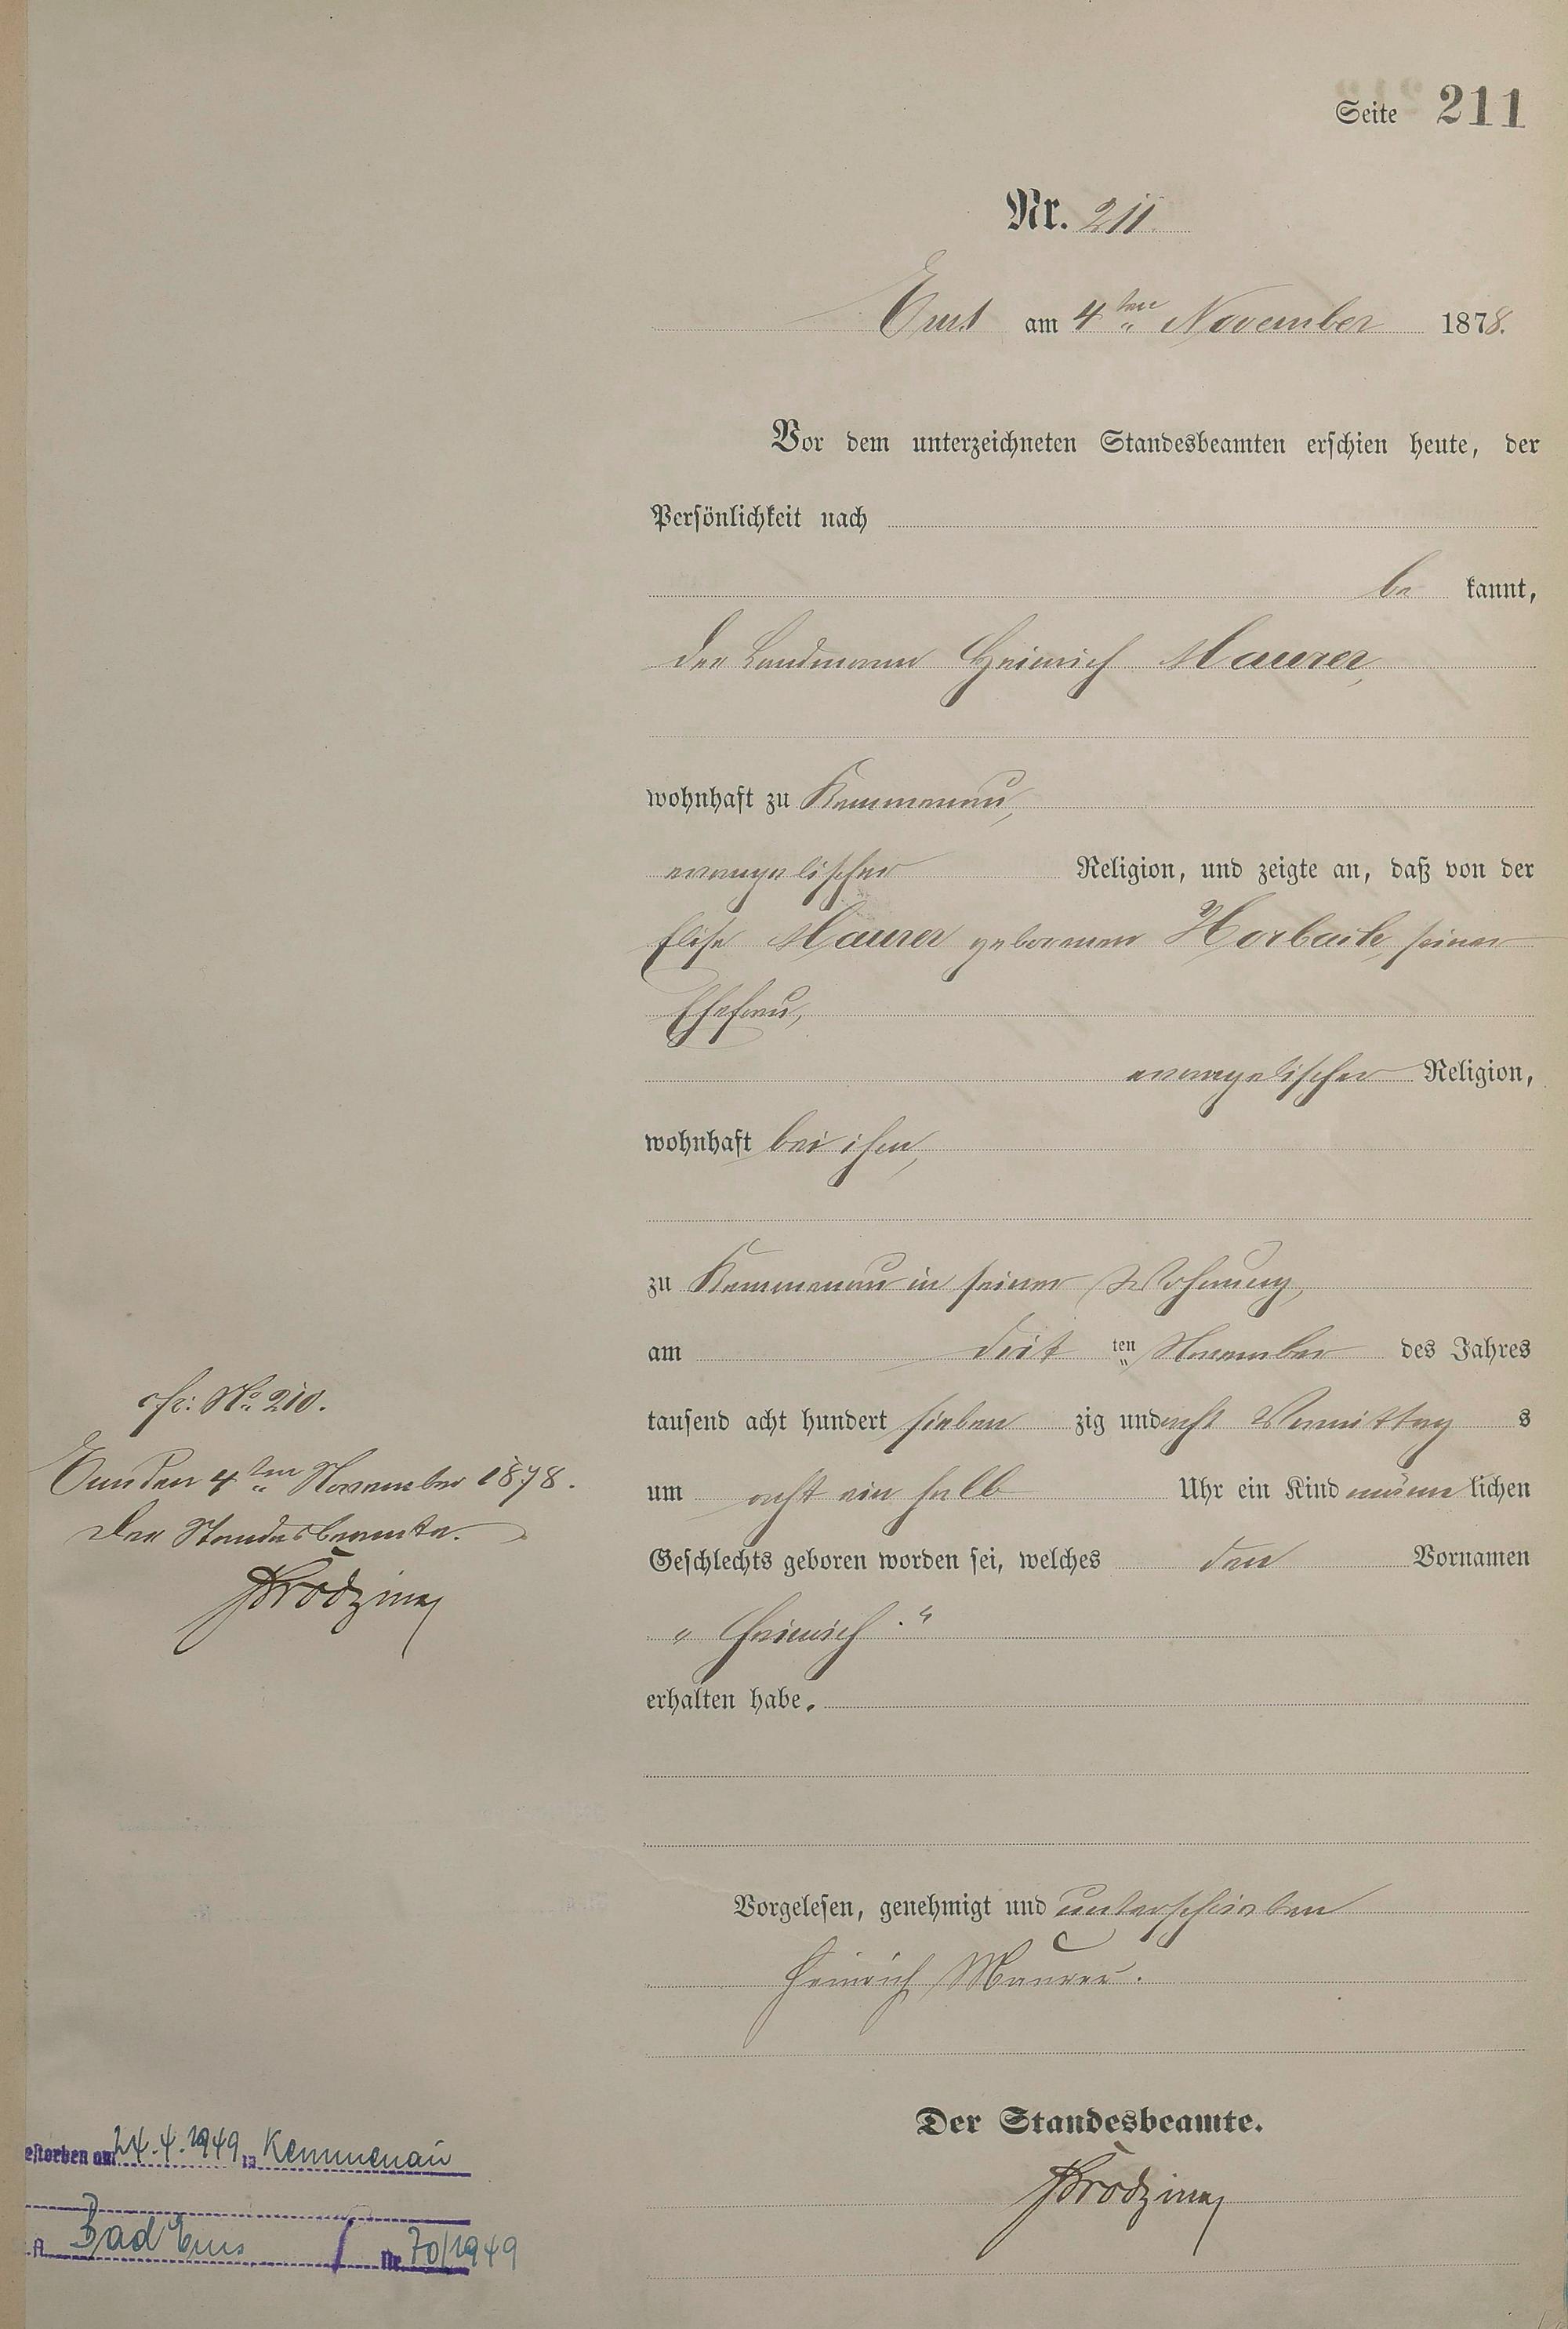 Seite 211
Nr. 211.
Ems am 4ten November 1878.
Vor dem unterzeichneten Standesbeamten erschien heute, der
Persönlichkeit nach
be kannt,
der Landmann Heinrich Maurer,
wohnhaft zu Kemmenau,
evangelischer Religion, und zeigte an, daß von der
Elise Maurer geborenen Horbach, seiner
Ehefrau,
evangelischer Religion,
wohnhaft bei ihm,
zu Kemmenau in seiner Wohnung,
am drit ten November des Jahres
tausend acht hundert sieben zig und acht Vormittag s
um acht ein halb Uhr ein Kind männ lichen
Geschlechts geboren worden sei, welches den Vornamen
„Heinrich."
erhalten habe.
Vorgelesen, genehmigt und unterschrieben
Heinrich Maurer.
Der Standesbeamte.
cfr: No. 210.
Ems den 4ten November 1878.
Der Standesbeamte.
estorben am 24.4.1949 in Kemmenau
A. Bad Ems Nr. 70/1949